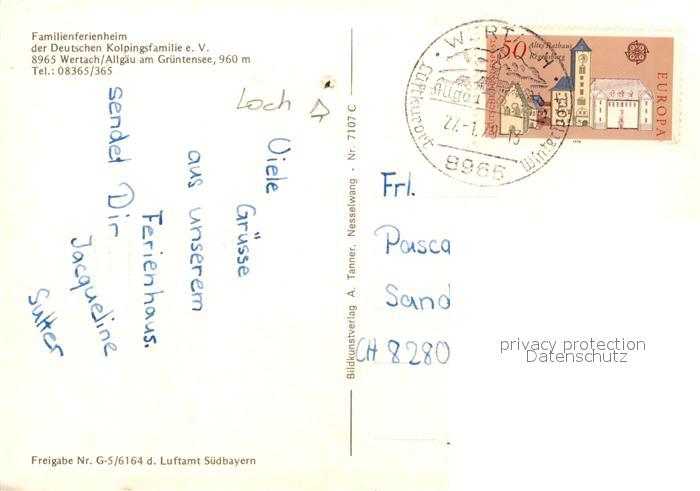 Familienferienheim
der Deutschen Kolpingsfamilie e. V.
8965 Wertach/Allgäu am Grüntensee, 960 m
Tel.: 08365/365
Loch
Viele
Grüsse
aus unserem
Ferienhaus.
sendet Dir
Jacqueline
Sutter
Bildkunstverlag A. Tanner, Nesselwang - Nr. 7107 C
Freigabe Nr. G-5/6164 d. Luftamt Südbayern
WERTACH
Allgäu
Luftkurort
27.-1.79-13
8965
50
Altes Rathaus
Regensburg
EUROPA
1978
Frl.
Pasca
Sand
CH 8280
privacy protection
Datenschutz